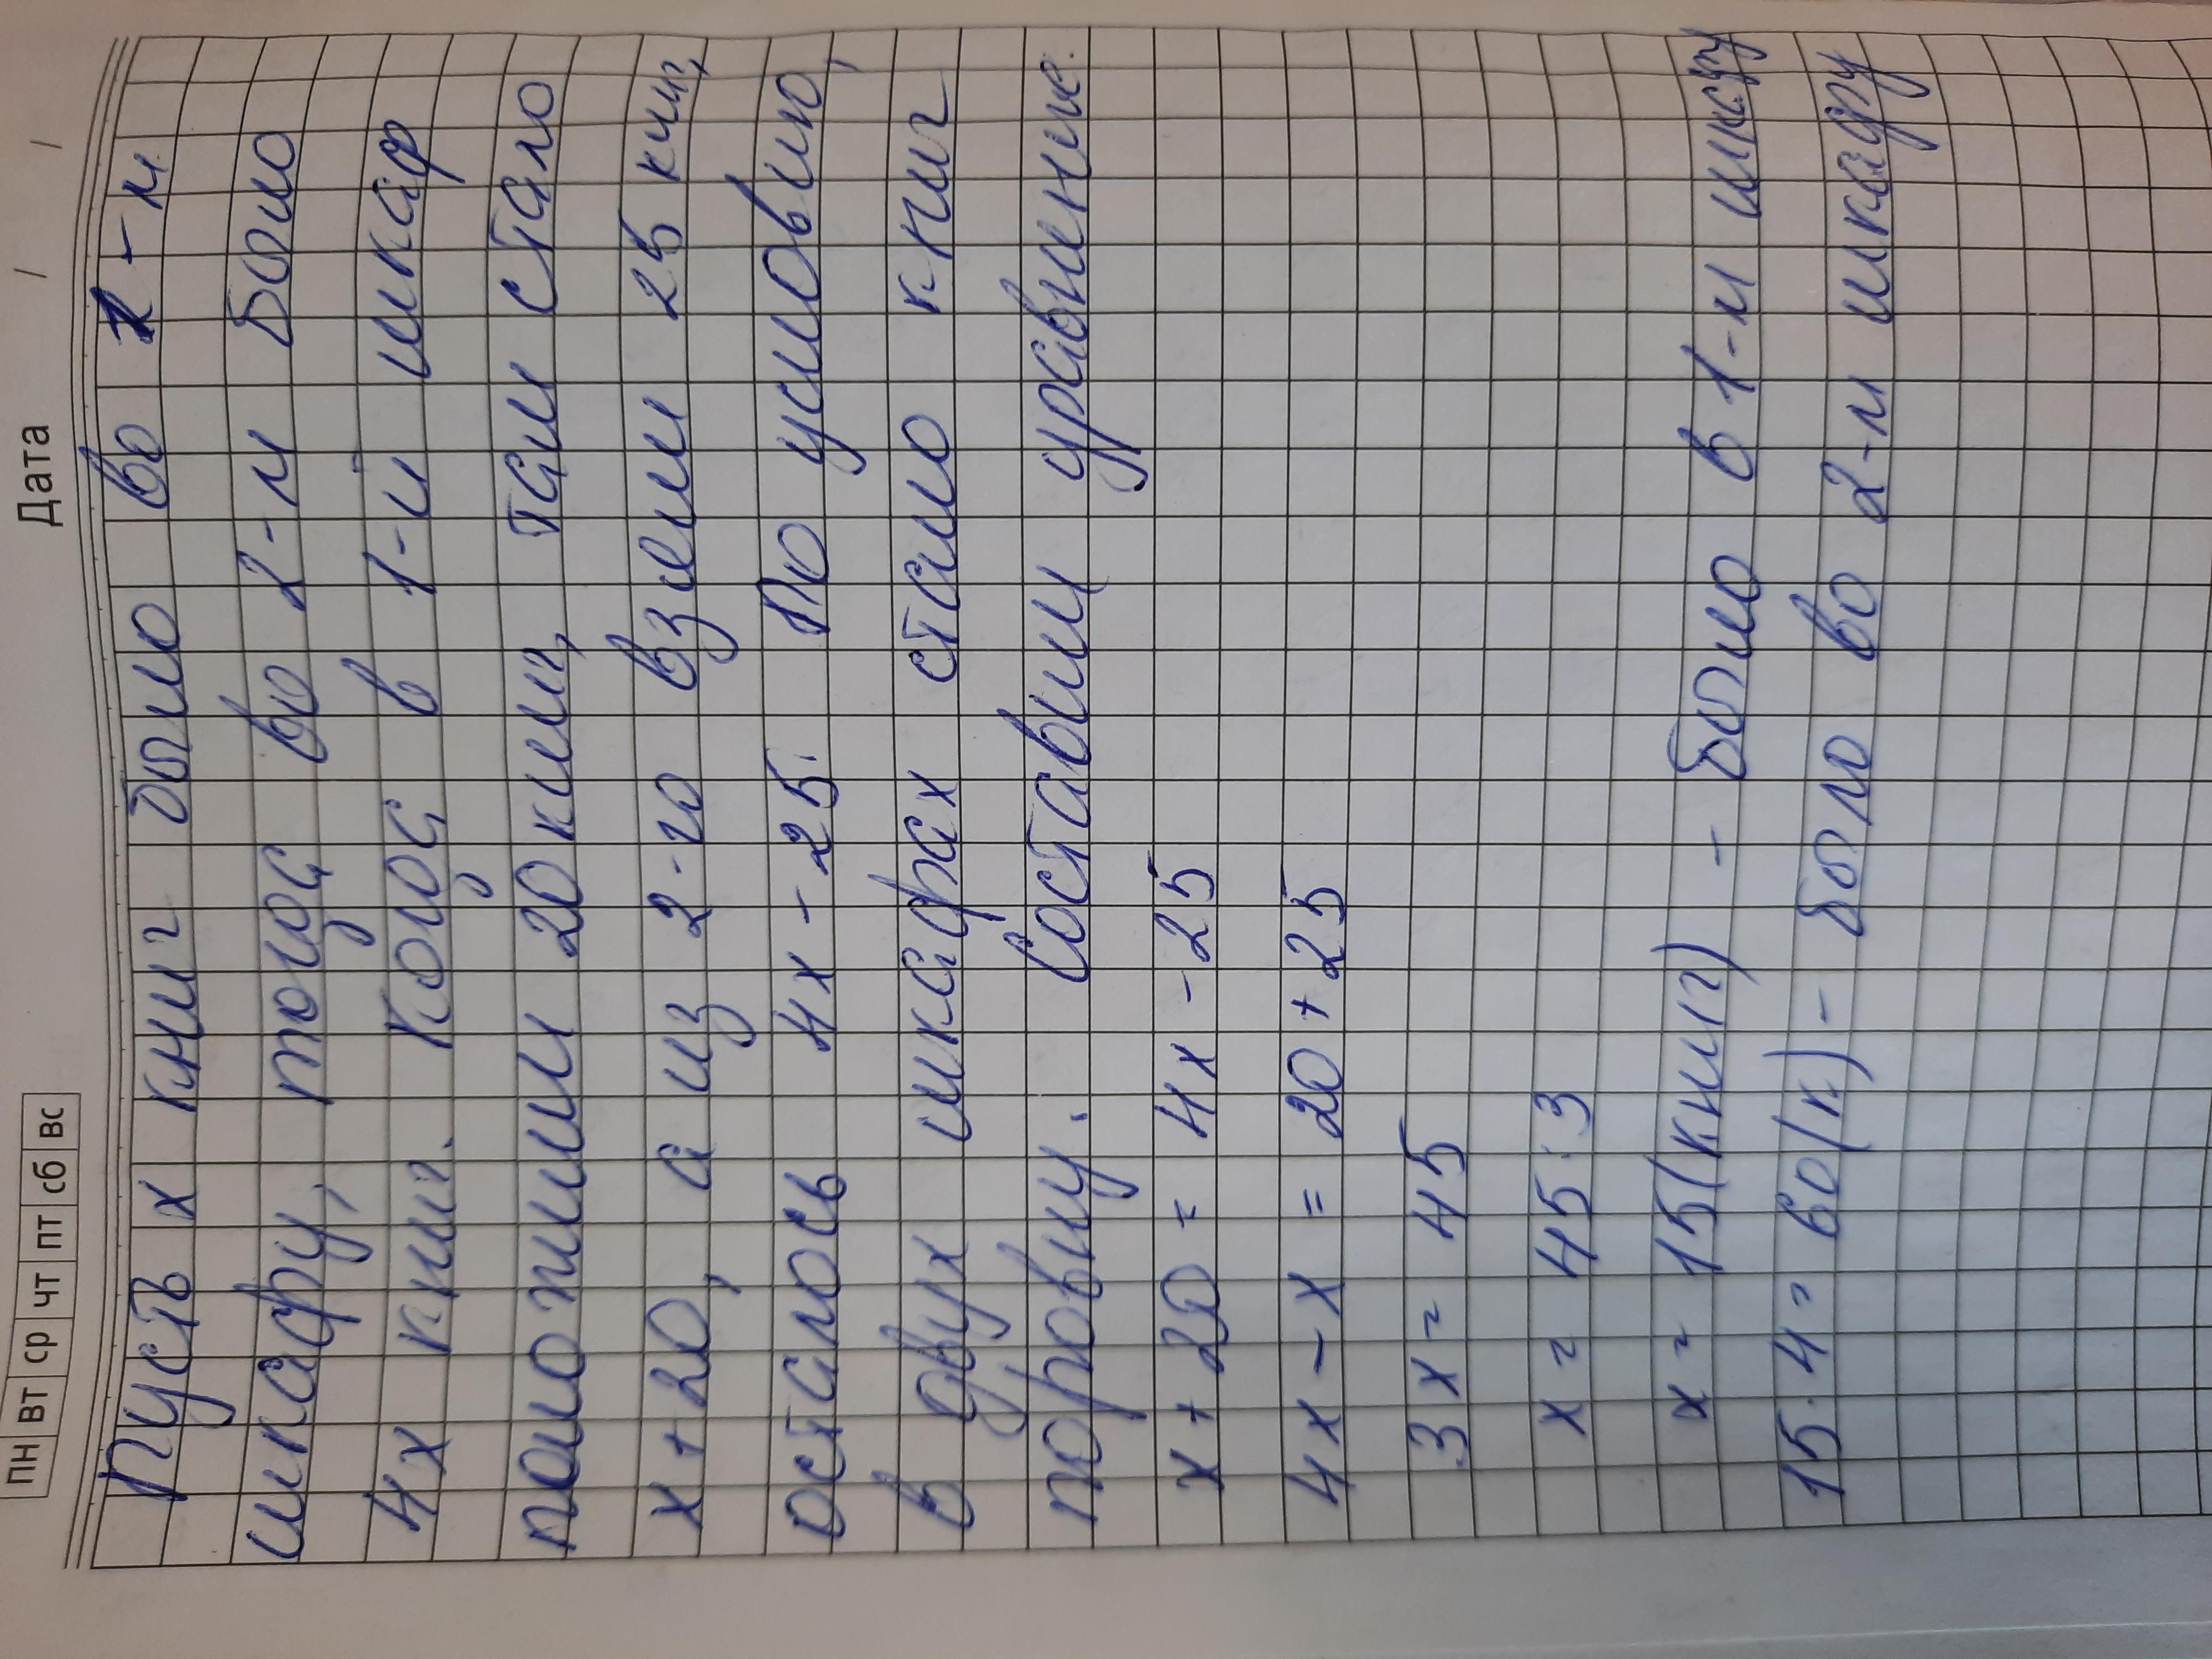 Дата / /
пн вт ср чт пт сб вс
Пусть х книг было во 1-м
шкафу, тогда во 2-м было
4х книг. Когда в 1-й шкаф
положили 20 книг, там стало
х+20, а из 2-го взяли 25 книг,
осталось 4х - 25. По условию,
в двух шкафах стало книг
поровну. Составим уравнение.
х + 20 = 4х - 25
4х - х = 20 + 25
3х = 45
х = 45 : 3
х = 15 (книг) - было в 1-м шкафу
15 · 4 = 60 (к) - было во 2-м шкафу